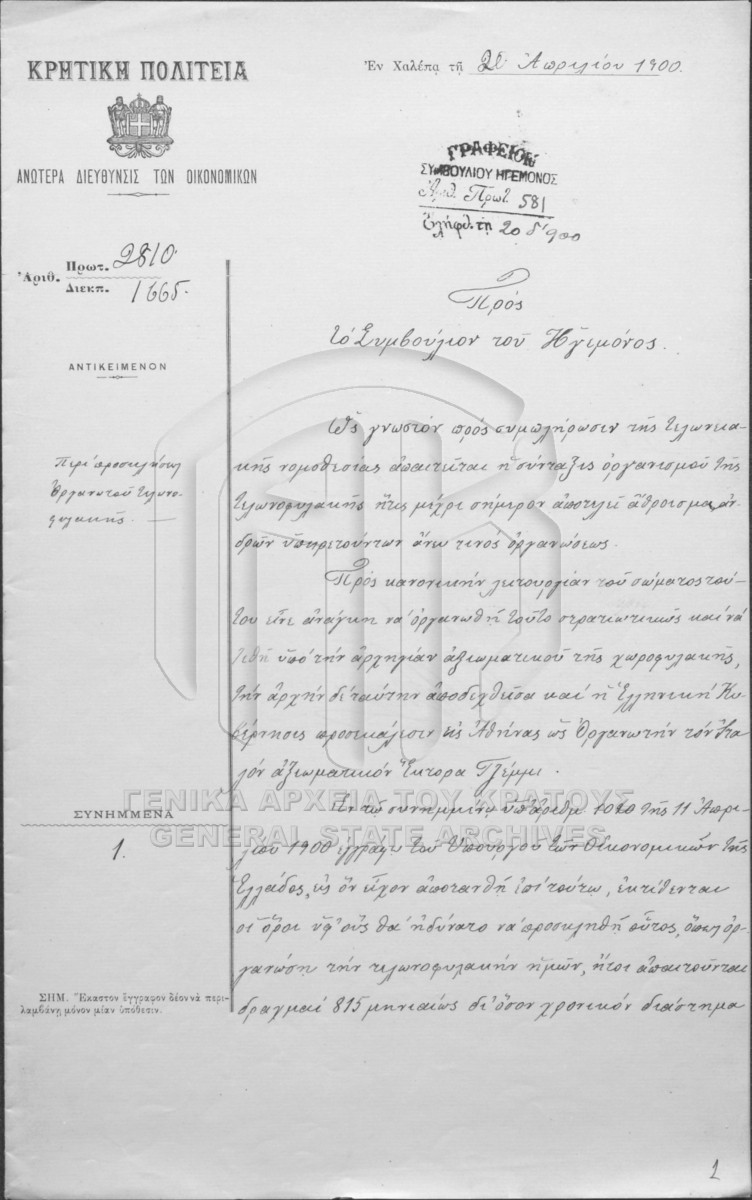 ΚΡΗΤΙΚΗ ΠΟΛΙΤΕΙΑ
ΑΝΩΤΕΡΑ ΔΙΕΥΘΥΝΣΙΣ ΤΩΝ ΟΙΚΟΝΟΜΙΚΩΝ
Ἐν Χαλέπᾳ τῇ Ἀπριλίου 1900.
ΓΡΑΦΕΙΟΝ
ΣΥΜΒΟΥΛΙΟΥ ΗΓΕΜΟΝΟΣ
Ἀριθ. Πρωτ. 581
Ἐλήφθη τῇ 20 δ' 900
Ἀριθ. Πρωτ. 2810
Διεκπ. 1665.
ΑΝΤΙΚΕΙΜΕΝΟΝ
Περὶ προσκλήσεως
Ὀργανωτοῦ τελωνο-
φυλακῆς.
ΣΥΝΗΜΜΕΝΑ
1.
ΣΗΜ. Ἕκαστον ἔγγραφον δέον νὰ περι-
λαμβάνῃ μόνον μίαν ὑπόθεσιν.
Πρὸς
τὸ Συμβούλιον τοῦ Ἡγεμόνος.
Ὡς γνωστὸν πρὸς συμπλήρωσιν τῆς τελωνεια-
κῆς νομοθεσίας ἀπαιτεῖται ἡ σύνταξις ὀργανισμοῦ τῆς
τελωνοφυλακῆς ἥτις μέχρι σήμερον ἀποτελεῖ ἄθροισμα ἀν-
δρῶν ὑπηρετούντων ἄνευ τινὸς ὀργανώσεως.
Πρὸς κανονικὴν λειτουργίαν τοῦ σώματος τού-
του εἶνε ἀνάγκη νὰ ὀργανωθῇ τοῦτο στρατιωτικῶς καὶ νὰ
τεθῇ ὑπὸ τὴν ἀρχηγίαν ἀξιωματικοῦ τῆς χωροφυλακῆς,
τὴν ἀρχὴν δὲ ταύτην ἀποδεχθεῖσα καὶ ἡ Ἑλληνικὴ Κυ-
βέρνησις προσεκάλεσεν εἰς Ἀθήνας ὡς Ὀργανωτὴν τὸν Ἰτα-
λὸν ἀξιωματικὸν Ἕκτορα Τζέμμι.
Ἐν τῷ συνημμένῳ ὑπ' ἀριθμ. τῆς 11 Ἀπρι-
λίου 1900 ἐγγράφῳ τοῦ Ὑπουργοῦ τῶν Οἰκονομικῶν τῆς
Ἑλλάδος, εἰς ὃν εἶχον ἀποτανθῆ ἐπὶ τούτῳ, ἐκτίθενται
οἱ ὅροι ὑφ' οὓς θὰ ἠδύνατο νὰ προσκληθῇ οὗτος, ὅπως ὀρ-
γανώσῃ τὴν τελωνοφυλακὴν ἡμῶν, ἤτοι ἀπαιτοῦνται
δραχμαὶ 815 μηνιαίως δι' ὅσον χρονικὸν διάστημα
ΓΕΝΙΚΑ ΑΡΧΕΙΑ ΤΟΥ ΚΡΑΤΟΥΣ
GENERAL STATE ARCHIVES
1